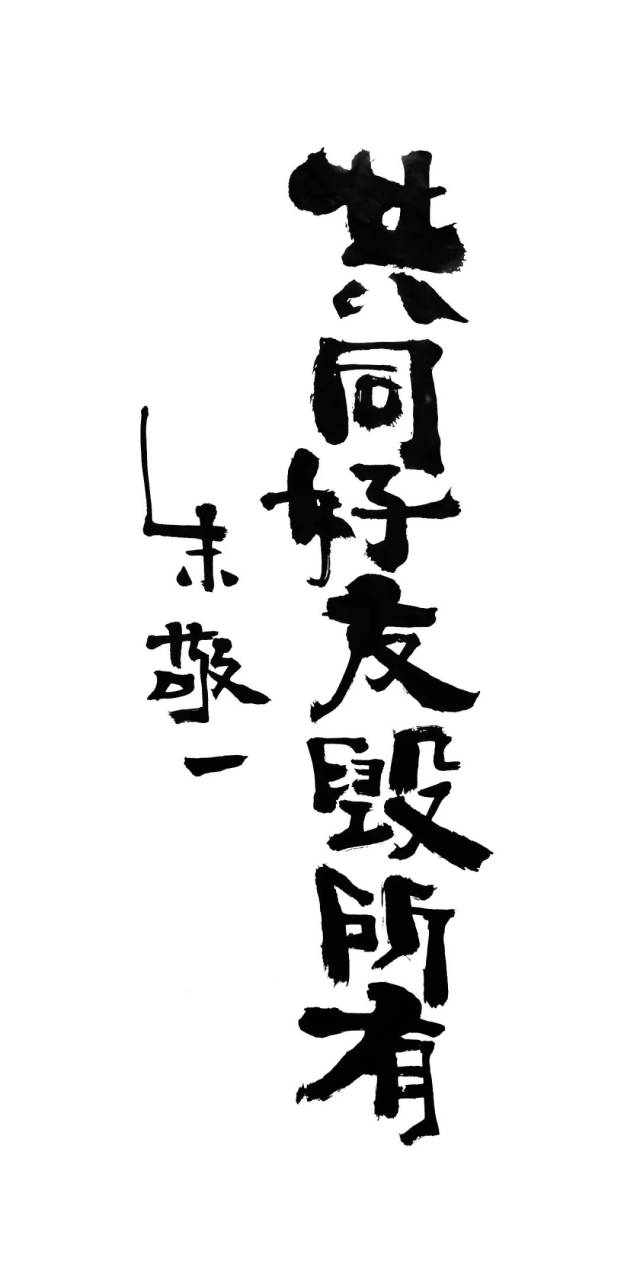 共同好友毁所有
朱敬一